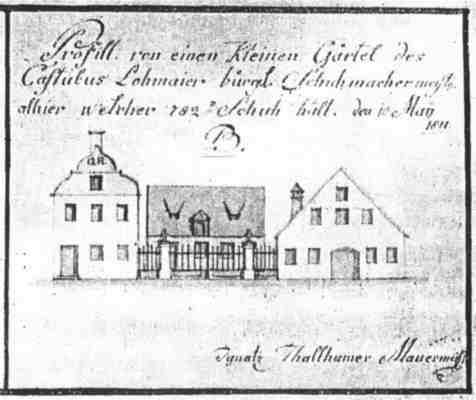 Profill. von einen Kleinen Gärtel des
Castulus Lohmaier bürgl. Schuhmachermeist.
allhier welcher 782² Schuh hält. den 10 May
1811
B.
G.R.
Ignatz Thallhamer Mauermst.